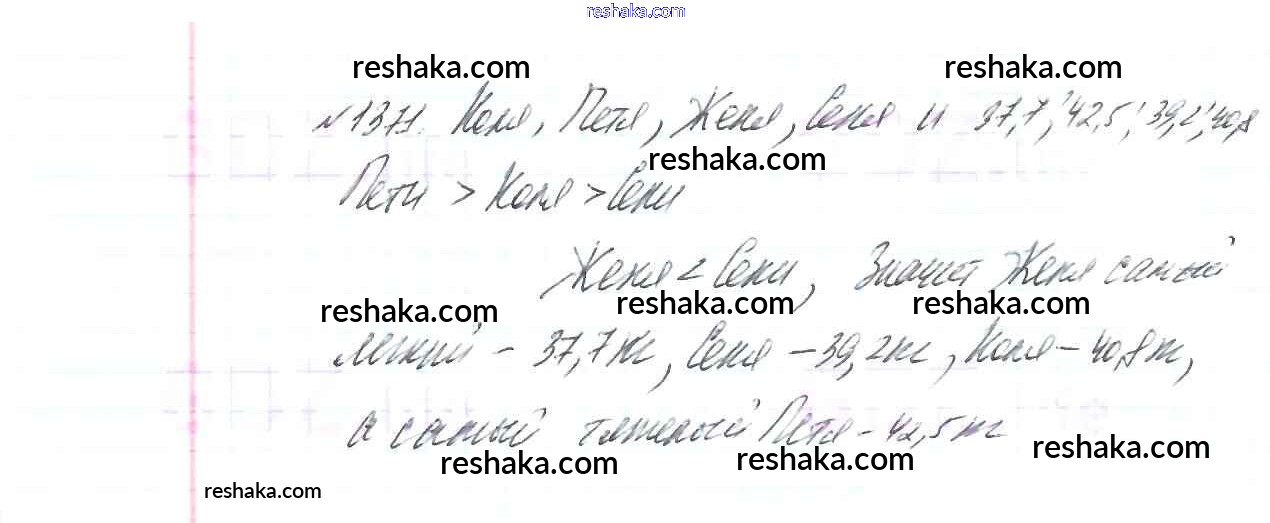 reshaka.com
reshaka.com reshaka.com
№1371. Коля, Петя, Женя, Сеня и 37,7; 42,5; 39,2; 40,8
reshaka.com
Пети > Коля > Сени
Женя < Сени, Значит Женя самый
reshaka.com reshaka.com reshaka.com
легкий - 37,7 кг, Сеня - 39,2 кг, Коля - 40,8 кг,
а самый тяжелый Петя - 42,5 кг
reshaka.com reshaka.com reshaka.com
reshaka.com